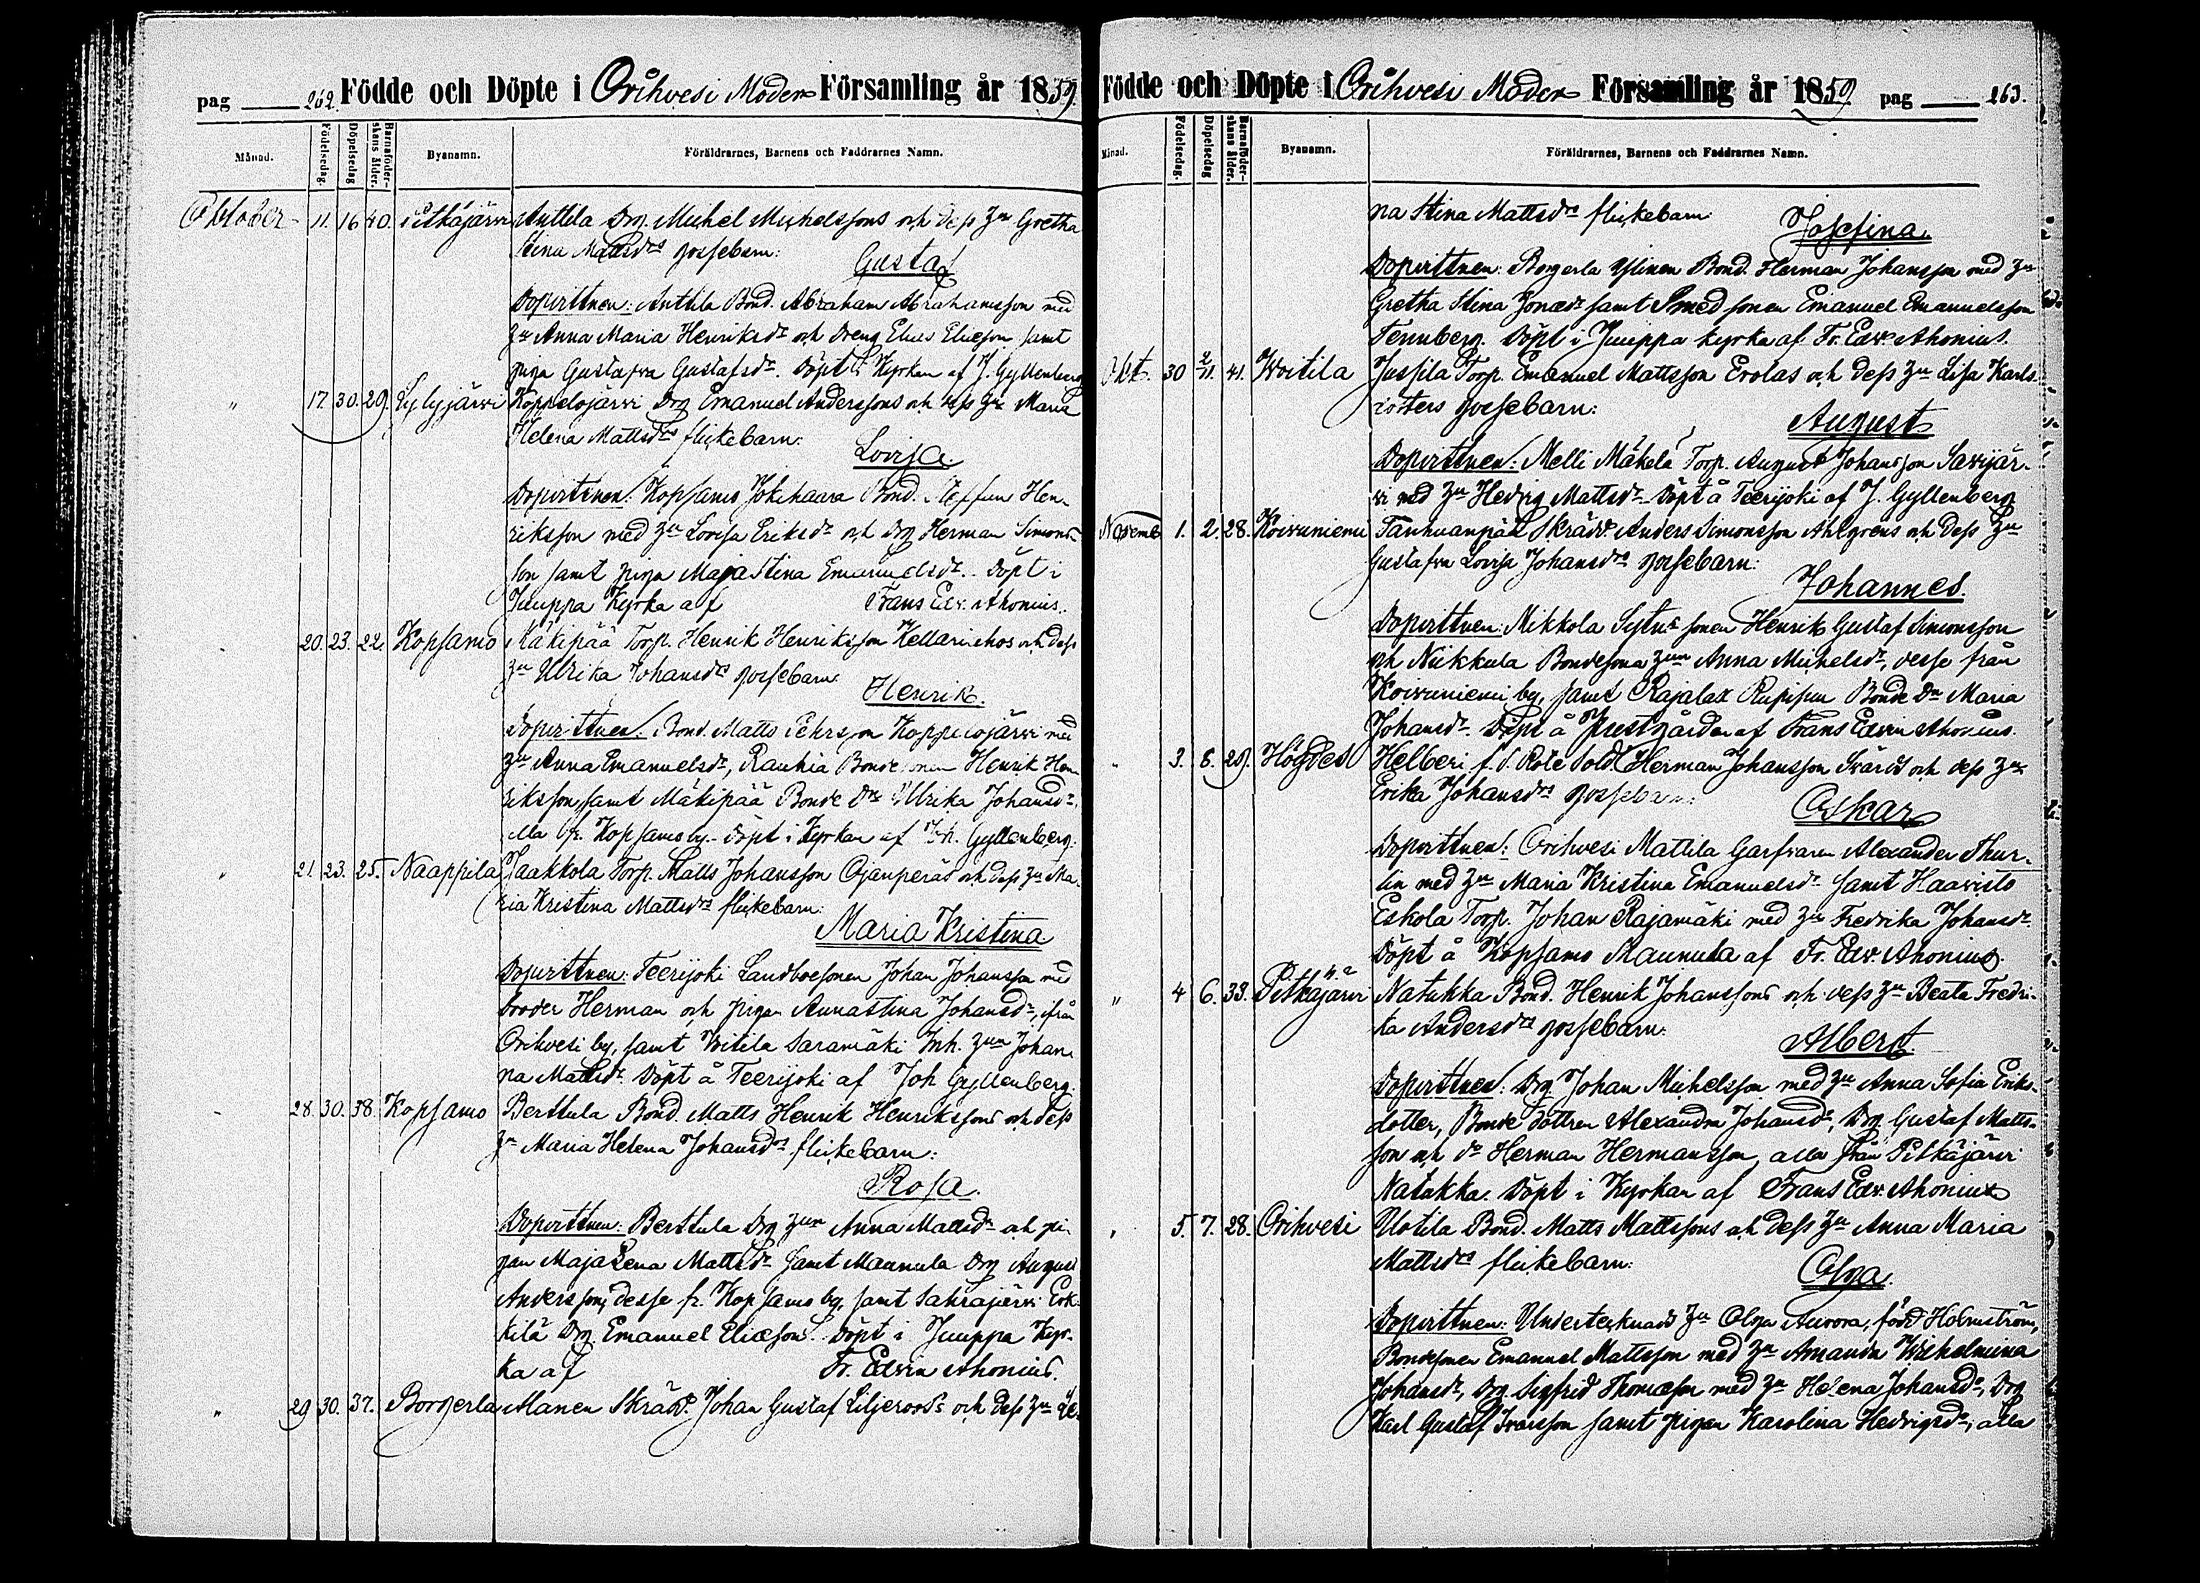 pag 262. Födde och Döpte i Orihvesi Moder Församling år 1859.
Månad. Födelsedag. Döpelsedag Barnaföder-skans ålder. Byanamn. Föräldrarnes, Barnens och Faddrarnes Namn.
Oktober 11. 16 40. Pitkäjärvi Anttila Drg. Michel Michelssons och dess Hu Gretha
Stina Mattsdrs gossebarn:
Gustaf
Dopvittnen: Anttila Bond. Abraham Abrahamsson med
Hu Anna Maria Henriksdr och Dreng Elias Eliesson samt
pigan Gustafva Gustafsdr. Döpt i Kyrkan af J. Gyllenberg
" 17. 30. 29. Lylyjärvi Koppelojärvi Drg Emanuel Anderssons och dess Hu Maria
Helena Mattsdrs flickebarn:
Lovisa.
Dopvittnen: Kopsamo Jokihaara Bond. Steffan Hen-
riksson med Hu Lovisa Eriksdr och Drg Herman Simons-
son samt pigan Maja Stina Emanuelsdr. Döpt i
Juuppa Kyrka af Frans Edv. Ahonius.
20. 23. 22. Kopsamo Mäkipää Torp. Henrik Henriksson Kellarinehos och dess
Hu Ulrika Johansdrs gossebarn:
Henrik.
Dopvittnen: Bond. Matts Pehrsson Koppelojärvi med
Hu Anna Emanuelsdr, Rauhia Bondesonen Henrik Hen-
riksson, samt Mäkipää Bonde Dr Ulrika Johansdr,
alla fr. Kopsamo by. Döpt i Kyrkan af Joh. Gyllenberg.
" 21. 23. 25. Naappila Jaakkola Torp. Matts Johansson Ojanperäs och dess Hu Ma-
ria Kristina Mattsdrs flickebarn:
Maria Kristina
Dopvittnen: Teerijoki Landboesonen Johan Johansson med
broder Herman och pigan Annastina Johansdr, ifrån
Orihvesi by, samt Voitila Saramäki Inh. Hun Johan-
na Mattsdr. Döpt å Teerijoki af Joh Gyllenberg.
28. 30. 38. Kopsamo Berttula Bond. Matts Henrik Henrikssons och dess
Hu Maria Helena Johansdrs flickebarn:
Rosa.
Dopvittnen: Berttula Drg Hun Anna Mattsdr och pi-
gan Maja Lena Mattsdr samt Maunula Drg August
Andersson, desse fr. Kopsamo by, samt Sahrajärvi Erk-
kilä Drg. Emanuel Eliesson. Döpt i Juuppa Kyr-
ka af Fr. Edvin Ahonius.
" 29 30. 37. Borgerla Alanen Skrädd. Johan Gustaf Liljeroos's och dess Hu Le-
Födde och Döpte i Orihvesi Moder Församling år 1859. pag 263.
Månad. Födelsedag. Döpelsedag Barnaföder-skans ålder. Byanamn. Föräldrarnes, Barnens och Faddrarnes Namn.
na Stina Mattsdrs flickebarn:
Josefina.
Dopvittnen: Borgerla Ylinen Bond. Herman Johansson med Hu
Gretha Stina Jonaedr samt Smedsonen Emanuel Emanuelsson
Tennberg. Döpt i Juuppa kyrka af Fr. Edv. Ahonius.
Okt. 30 2/11. 41. Voitila Jussila Torp. Emanuel Mattsson Erolas och dess Hu Lisa Karls-
dotters gossebarn:
August
Dopvittnen: Melli Mäkelä Torp. August Johansson Savijär-
vi med Hu Hedvig Mattsdr. Döpt å Teerijoki af J. Gyllenberg
Novemb 1. 2. 28. Koivuniemi Tanhuanpää Skrädd. Anders Simonsson Ahlgrens och dess Hu
Gustafva Lovisa Johansdrs gossebarn:
Johannes.
Dopvittnen: Mikkola Sytn: sonen Henrik Gustaf Simonsson
och Niikkula Bondesona Hun Anna Michelsdr, desse från
Koivuniemi by, samt Rajalax Bonde Dr Maria
Johansdr. Döpt å Prestgården af Frans Edvin Ahonius.
3. 8. 29. Högdes Helberi f. d. Rote Sold. Herman Johansson Svärds och dess Hu
Erika Johansdrs gossebarn:
Oskar
Dopvittnen: Orihvesi Mattila Garfvaren Alexander Thur-
lin med Hu Maria Kristina Emanuelsdr samt Haavisto
Eskola Torp. Johan Rajamäki med Hu Fredrika Johansdr.
Döpt å Kopsamo Maunula af Fr. Edv. Ahonius.
" 4 6. 33. Pitkäjärvi Natukka Bond. Henrik Johanssons och dess Hu Beata Fredri-
ka Andersdrs gossebarn:
Albert.
Dopvittnen: Drg Johan Michelsson med Hu Anna Sofia Eriks-
dotter, Bonde dottren Alexandra Johansdr, Drg Gustaf Matts-
son och do Herman Hermansson, alla från Pitkäjärvi
Natukka. Döpt i Kyrkan af Frans Edv. Ahonius
5. 7. 28. Orihvesi Uotila Bond. Matts Mattssons och dess Hu Anna Maria
Mattsdrs flickebarn:
Olga.
Dopvittnen: Undertecknads Hu Olga Aurora, född Holmström,
Bondesonen Emanuel Mattsson med Hu Amanda Wilhelmina
Johansdr, Drg. Sigfrid Thomasson med Hu Helena Johansdr, Drg
Karl Gustaf Ivarsson samt pigan Karolina Hedvigsdr, alla